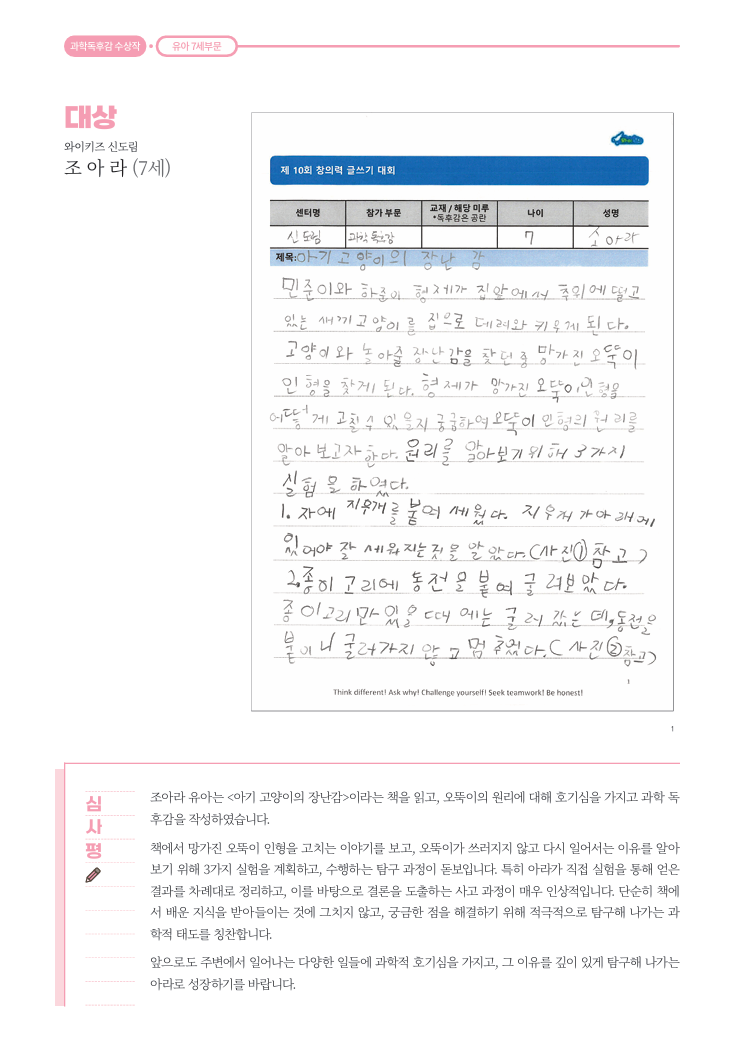 과학독후감 수상작
유아 7세부문
대상
와이키즈 신도림
조 아 라 (7세)
제 10회 창의력 글쓰기 대회
센터명 참가 부문 교재 / 해당 미루 나이 성명
*독후감은 공란
신도림 과학 독후감 7 조아라
제목: 아기 고양이의 장난 감
민준이와 하준이 형제가 집앞에서 추위에 떨고
있는 새끼고양이를 집으로 데려와 키우게 된다.
고양이와 놀아줄 장난감을 찾던중 망가진 오뚝이
인형을 찾게 된다. 형제가 망가진 오뚝이인형을
어떻게 고칠 수 있을지 궁금하여 오뚝이 인형의 원리를
알아보고자 한다. 원리를 알아보기위해 3가지
실험을 하였다.
1. 자에 지우개를 붙여 세웠다. 지우개가 아래에
있어야 잘 세워지는것을 알았다.(사진① 참고)
2.종이고리에 동전을 붙여 굴려보았다.
종이고리만 있을때에는 굴러 갔는데,동전을
붙이니 굴러가지 않고 멈추었다.(사진②참고)
1
Think different! Ask why! Challenge yourself! Seek teamwork! Be honest!
1
심
사
평
조아라 유아는 <아기 고양이의 장난감>이라는 책을 읽고, 오뚝이의 원리에 대해 호기심을 가지고 과학 독
후감을 작성하였습니다.
책에서 망가진 오뚝이 인형을 고치는 이야기를 보고, 오뚝이가 쓰러지지 않고 다시 일어서는 이유를 알아
보기 위해 3가지 실험을 계획하고, 수행하는 탐구 과정이 돋보입니다. 특히 아라가 직접 실험을 통해 얻은
결과를 차례대로 정리하고, 이를 바탕으로 결론을 도출하는 사고 과정이 매우 인상적입니다. 단순히 책에
서 배운 지식을 받아들이는 것에 그치지 않고, 궁금한 점을 해결하기 위해 적극적으로 탐구해 나가는 과
학적 태도를 칭찬합니다.
앞으로도 주변에서 일어나는 다양한 일들에 과학적 호기심을 가지고, 그 이유를 깊이 있게 탐구해 나가는
아라로 성장하기를 바랍니다.